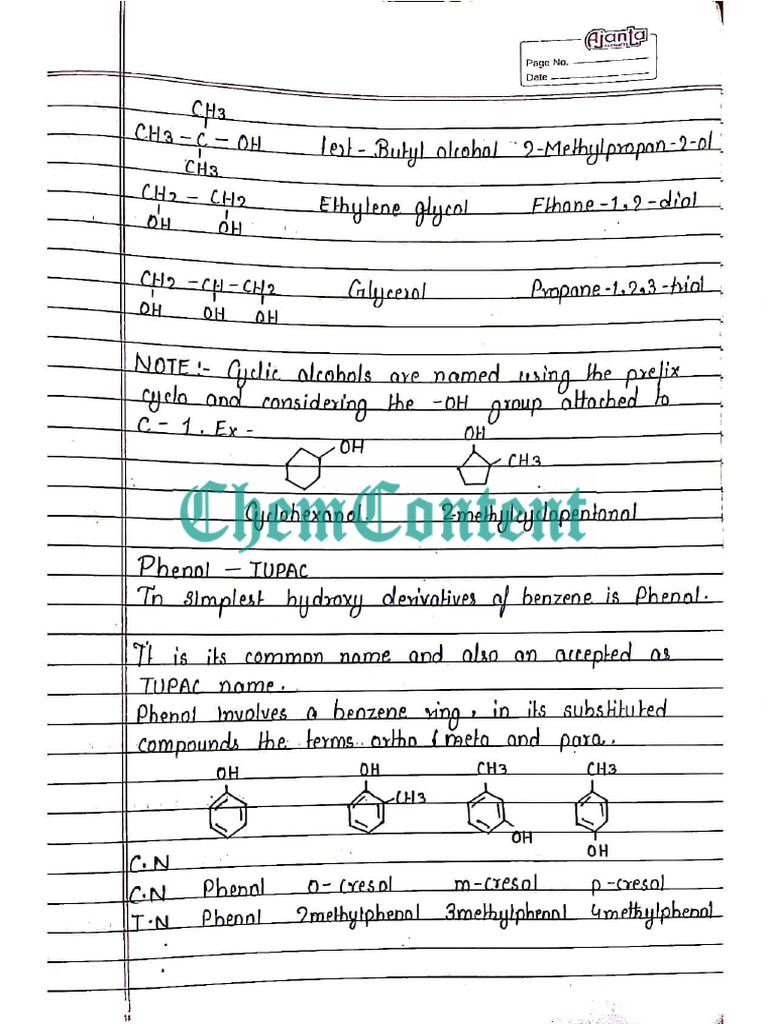 Ajanta
Page No.
Date
CH3
CH3 - C - OH   Tert - Butyl alcohol   2-Methylpropan-2-ol
CH3
CH2 - CH2   Ethylene glycol   Ethane-1,2-diol
OH   OH
CH2 - CH - CH2   Glycerol   Propane-1,2,3-triol
OH   OH   OH
NOTE:- Cyclic alcohols are named using the prefix
cyclo and considering the -OH group attached to
C - 1. Ex -
OH   OH
CH3
ChemContent
Cyclohexanol   2-methylcyclopentanol
Phenol - IUPAC
In simplest hydroxy derivatives of benzene is Phenol.
It is its common name and also an accepted as
IUPAC name.
Phenol involves a benzene ring, in its substituted
compounds the terms ortho, meta and para.
OH   OH   CH3   CH3
CH3
OH   OH
C.N
C.N   Phenol   o- cresol   m-cresol   p-cresol
I.N   Phenol   2methylphenol   3methylphenol   4methylphenol